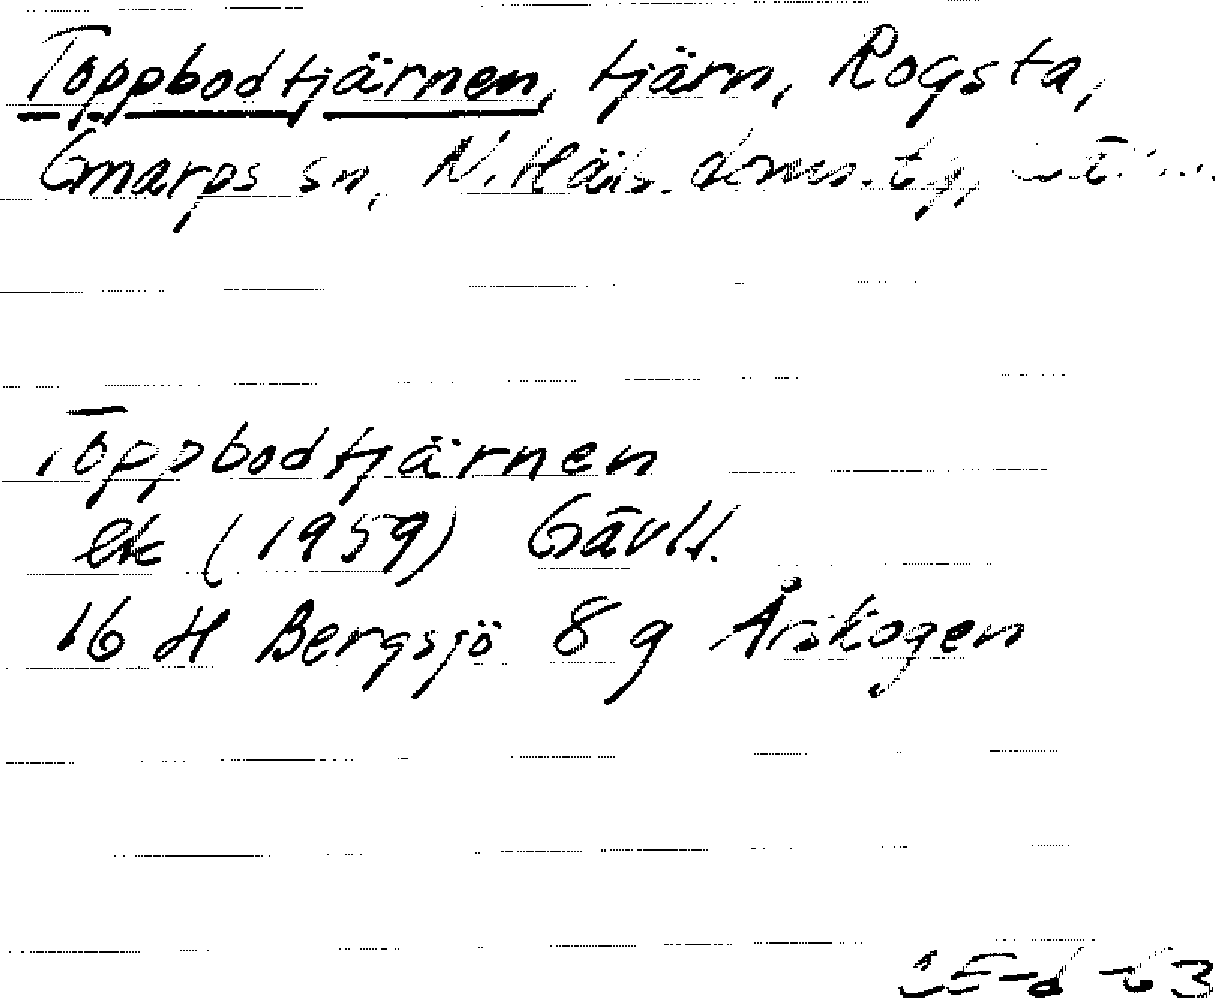 Toppbodtjärnen, tjärn, Rogsta,
Gnarps sn, N. Häls. doms.
Toppbodtjärnen
ek (1959) Gävlt.
16 H Bergsjö 8 g Årskogen